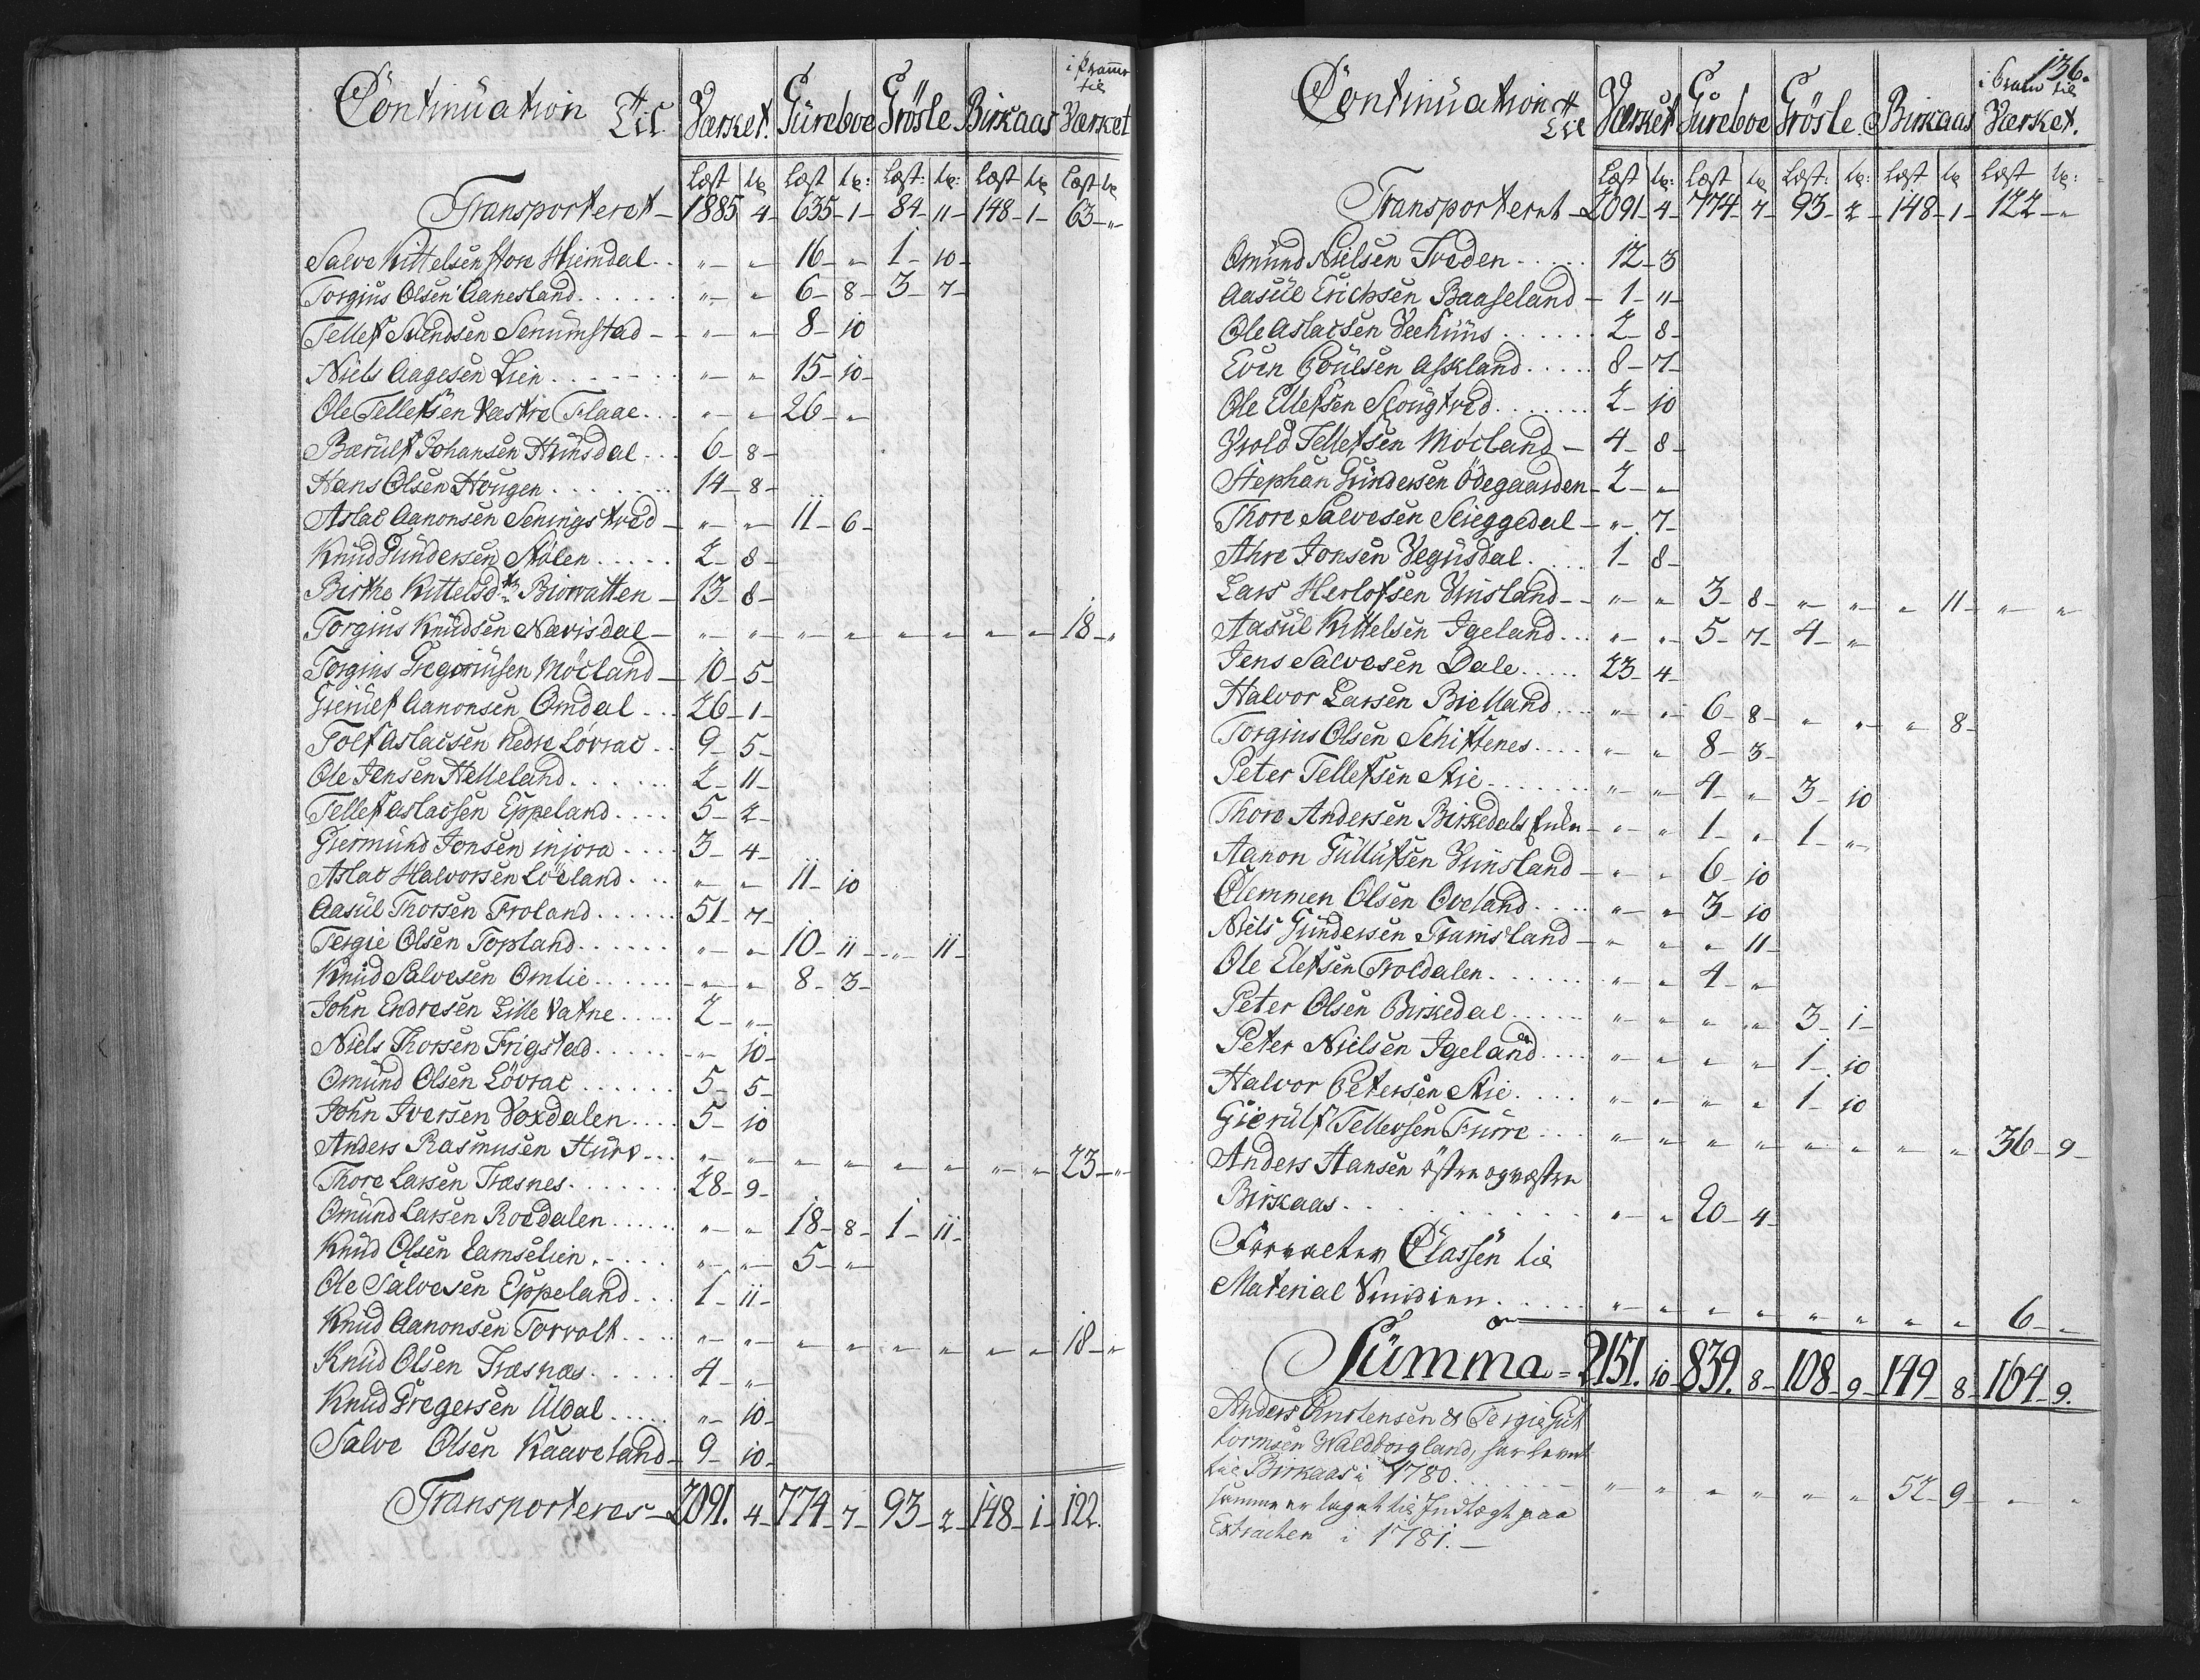 Continuation Til Værket. Güreboe Grösle Birkaas i Pramme til Værket
Læst lp Læst lp: Læst: lp: Læst lp Læst lp
Transporteret - 1885 4 - 635 - 1 - 84 - 11 - 148 - 1 - 63 - "
Salve Kittelsen store Hiemdal . . " - " - 16 - " - 1 - 10 -
Torgius Olsen Aanesland . . . . " - " - 6 - 8 - 3 - 7 -
Tellef Svendsen Senumstad - " - " - 8 - 10
Niels Aagesen Lien . . . . " - " - 15 - 10 -
Ole Tellefsen Vastre Flaae . . " - " - 26 - "
Bærulf Johansen Hunsdal . . 6 - 8 -
Hans Olsen Hougen . . . . 14 - 8 -
Aslac Aanonsen Seningstved - " - " - 11 - 6 -
Knud Gundersen Stølen . . . . 2 - 8 -
Birthe Kittelsdtr Biorvatten - 13 - 8 -
Torgius Knudsen Nævisdal - " - " - " - " - " - " - " - " - 18 - "
Torgius Gregoriusen Mócland - 10 - 5 -
Gierulf Aanonsen Omdal . . 26 - 1 -
Tolf Aslacsen Nedre Lövrac . . 9 - 5 -
Ole Jensen Helleland . . . . 2 - 11 -
Tellef Aslacsen Eppeland . . . . 5 - 2 -
Giermund Jonsen injora . . . . 3 - 4 -
Aslac Halvorsen Löcland . . . " - " - 11 - 10
Aasul Thorsen Froland . . . . 51 - 7 -
Tergie Olsen Topland . . . . " - " - 10 - 11 - " - 11 -
Knud Salvesen Omlie . . . . " - " - 8 - 3 -
John Endresen Lille Vatne . . . . 2 - "
Niels Thorsen Frigstad . . . . " - 10 -
Omund Olsen Lövrac . . . . 5 - 5 -
John Iversen Voxdalen . . . . 5 - 10
Anders Rasmusen Hurv . . . " - " - " - " - " - " - " - " - 23 - "
Thore Larsen Træsnes . . . . 28 - 9 -
Omund Larsen Rocdalen . . . . " - " - 18 - 8 - 1 - 11 -
Knud Olsen Lamselien . . . . " - " - 5 - "
Ole Salvesen Eppeland . . . 1 - 11 -
Knud Aanonsen Torvolt . . . . " - " - " - " - " - " - " - " - 18 - "
Knud Olsen Træsnæs . . . . 4 - "
Knud Gregersen Uldal . . . . " - 10 -
Salve Olsen Kaaveland - 9 - 10 -
Transporteres - 2091. 4 - 774 - 7 - 93 - 2 - 148 - 1 - 122.
136.
Continuation Til Værket Güreboe Grösle Birkaas til Værket.
Læst lp: Læst lp Læst: lp: Læst lp Læst lp:
Transporteret - 2091 - 4 - 774 - 7 - 93 - 2 - 148 - 1 - 122 - "
Omund Nielsen Treden . . . . 12 - 3
Aasul Erichsen Baaseland - 1 - 11 -
Ole Aslacsen Veehuus . . . . 2 - 8 -
Even Poulsen Askland . . . . 8 - 7 -
Ole Ellefsen Scougtved . . . . 2 - 10
Yvold Tellefsen Mocland - 4 - 8 -
Stephan Gundersen Ödegaarden - 2 - "
Thore Salvesen Scieggedal - " - 7 -
Ahre Jonsen Vegusdal . . . 1 - 8 -
Lars Herlofsen Unsland - " - " - 3 - 8 - " - " - " - 11 - " - "
Aasul Kittelsen Igeland . . . " - " - 5 - 7 - 4 - "
Jens Salvesen Dale . . . . 23 - 4 -
Halvor Larsen Bielland . . . . " - " - 6 - 8 - " - " - " - 8 -
Torgius Olsen Schiftenes . . . . " - " - 8 - 3 -
Peter Tellefsen Stie . . . . " - " - 4 - " - 3 - 10
Thore Andersen Birkedals - " - " - 1 - " - 1 - "
Aanon Gullufsen Uunsland - " - " - 6 - 10
Clemmen Olsen Oveland . . . . " - " - 3 - 10
Niels Gundersen Tramsland - " - " - " - 11 -
Ole Elefsen Troldalen . . . . " - " - 4 - "
Peter Olsen Birkedal . . . . " - " - " - " - 3 - 1 -
Peter Nielsen Igeland . . . . " - " - " - " - 1 - 10
Halvor Petersen Stie . . . . " - " - " - " - 1 - 10
Gierulf Tellevsen Furre . . . " - " - " - " - " - " - " - " - 36 - 9 -
Anders Hansen östre og westre
Birkaas . . . . " - " - 20 - 4 -
Forvalter Classen til
Material . . . . " - " - " - " - " - " - " - " - 6 - "
Summa = 2151. 10 - 839. 8 - 108 - 9 - 149 - 8 - 164 - 9.
Anders & Tergie Gut
tormsen Waldborgland, har levret
til Birkaas i 1780. . . . " - " - " - " - " - " - 52 - 9 - " - "
samme er taget til Indtægt paa
Extracten i 1781. -